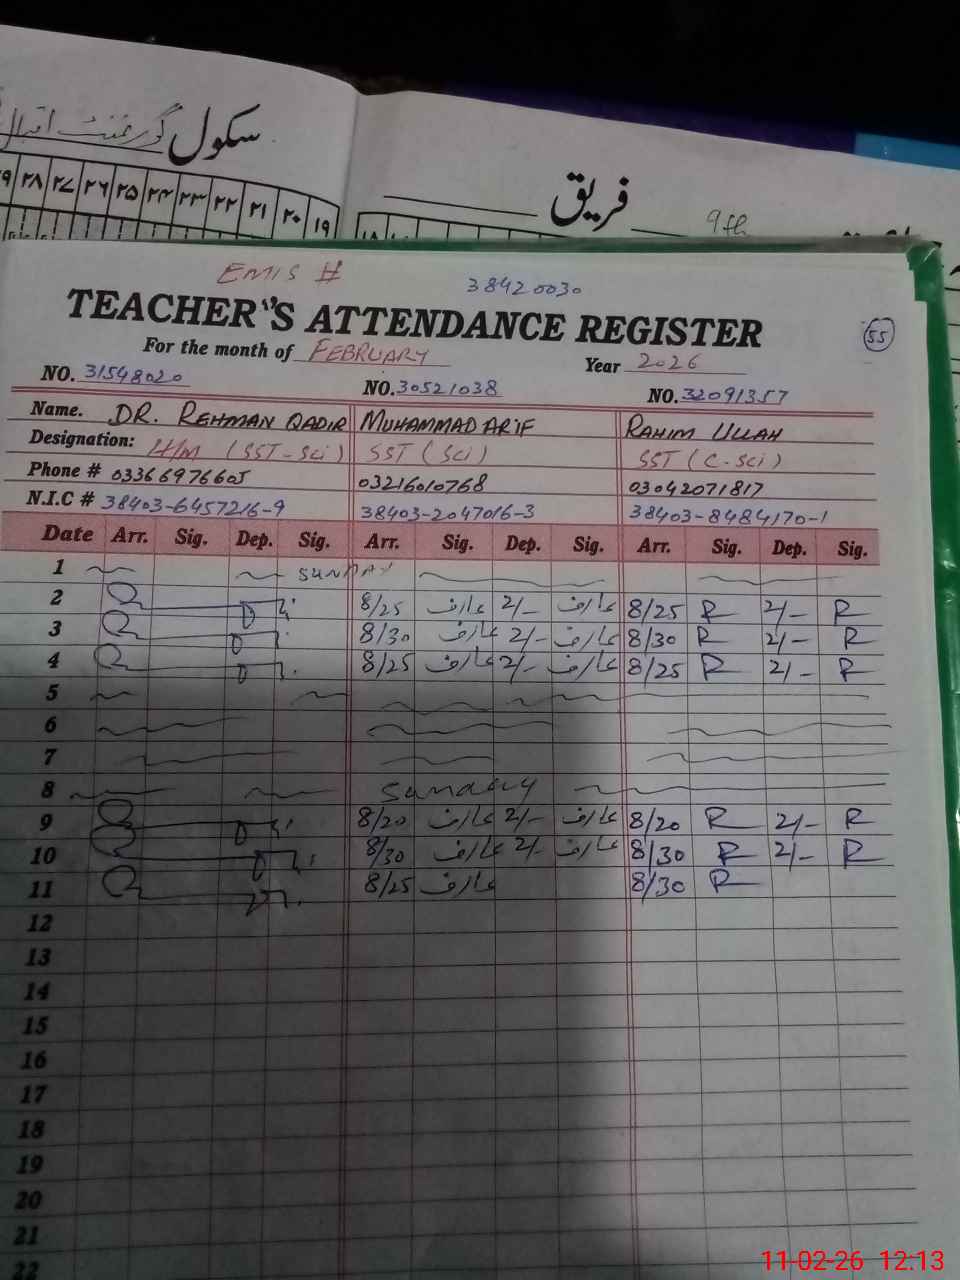 سکول گورنمنٹ اقبال
۲۸ ۲۷ ۲۶ ۲۵ ۲۴ ۲۳ ۲۲ ۲۱ ۲۰ ۱۹
فریق 9th
EMIS # 38420030
TEACHER'S ATTENDANCE REGISTER
55
For the month of FEBRUARY Year 2026
NO. 31548020 NO. 30521038 NO. 32091357
Name. DR. REHMAN QADIR MUHAMMAD ARIF RAHIM ULLAH
Designation: H/M (SST-Sci) SST (Sci) SST (C-Sci)
Phone # 03366976605 03216010768 03042071817
N.I.C # 38403-6457216-9 38403-2047016-3 38403-8484170-1
Date Arr. Sig. Dep. Sig. Arr. Sig. Dep. Sig. Arr. Sig. Dep. Sig.
1 SUNDAY
2 8/25 عارف 2/- عارف 8/25 R 2/- R
3 8/30 عارف 2/- عارف 8/30 R 2/- R
4 8/25 عارف 2/- عارف 8/25 R 2/- R
5
6
7
8 Sunday
9 8/20 عارف 2/- عارف 8/20 R 2/- R
10 8/30 عارف 2/- عارف 8/30 R 2/- R
11 8/25 عارف 8/30 R
12
13
14
15
16
17
18
19
20
21
22
11-02-26 12:13